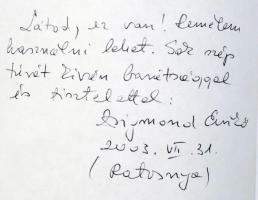 Látod, ez van! Remélem
használni lehet. Sok szép
túrát kíván barátsággal
és tisztelettel:
Zsigmond Enikő
2003. VII. 31.
(Ratosnya)